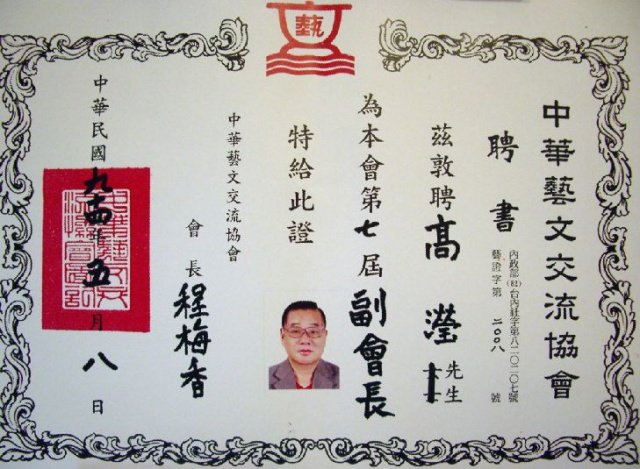 藝
中華藝文交流協會
聘書
內政部(82)台內社字第八二〇二〇七號
藝證字第二〇〇八號
茲敦聘高瀅先生
為本會第七屆副會長
特給此證
中華藝文交流協會
會長程梅香
中華民國九十四年五月八日